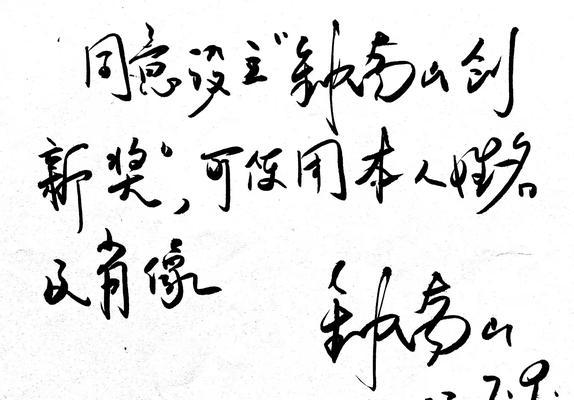 同意设立“钟南山创
新奖”,可使用本人姓名
及肖像
钟南山